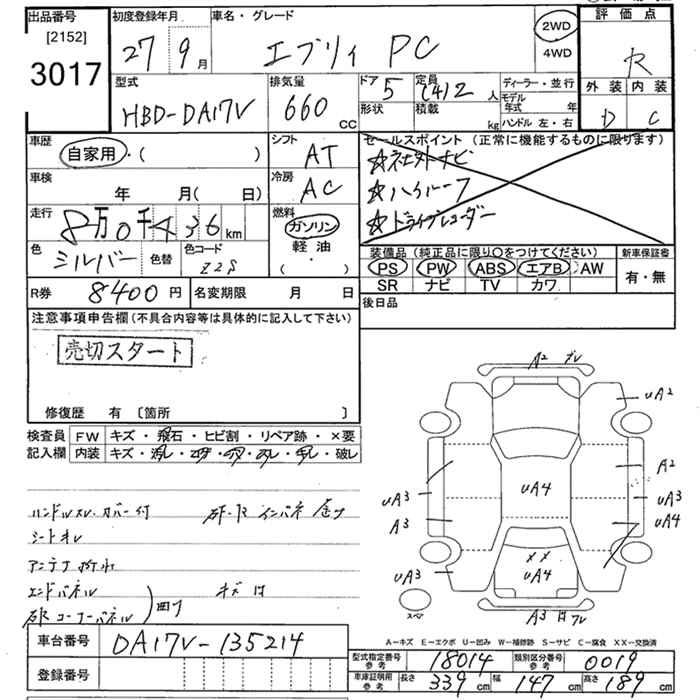 出品番号
[2152]
3017
初度登録年月
27 9月
車名・グレード
エブリィ PC
2WD
4WD
評価点
R
外装 内装
D C
型式
HBD-DA17V
排気量
660 CC
ドア 5
形状
定員 (4)2 人
積載 kg
ディーラー・並行
モデル年式 年
ハンドル 左・右
車歴
自家用・( )
車検
年 月( 日)
走行
8万0千436 km
色
シルバー
色替
色コード
Z2S
シフト
AT
冷房
AC
燃料
ガソリン
軽油・
( )
セールスポイント (正常に機能するものに限ります)
☆社外ナビ
☆ハイルーフ
☆ドライブレコーダー
装備品 (純正品に限り○をつけてください)
PS PW ABS エアB AW
SR ナビ TV カワ
新車保証書
有・無
R券 8400 円
名変期限 月 日
後日品
注意事項申告欄 (不具合内容等は具体的に記入して下さい)
売切スタート
修復歴 有 〔箇所 〕
検査員
記入欄
FW キズ・飛石・ヒビ割・リペア跡・×要
内装 キズ・汚レ・コゲ・穴・スレ・切レ・破レ
ハンドルスレ・カバー付
シートキレ
アンテナ折れ
エンドパネル
コーナーパネル
凹
車台番号 DA17V-135214
登録番号
A2
uA2
A2
uA3
uA4
uA3
A3
uA3
uA4
××
uA4
A3
スペア
A-キズ E-エクボ U-凹み W-補修跡 S-サビ C-腐食 XX-交換済
型式指定番号 参考 18014
類別区分番号 参考 0019
車庫証明用 参考 長さ 339 cm 幅 147 cm 高さ 189 cm